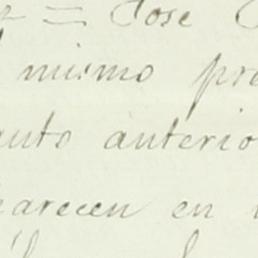 = Jose
mismo pre
auto anterio
parecen en